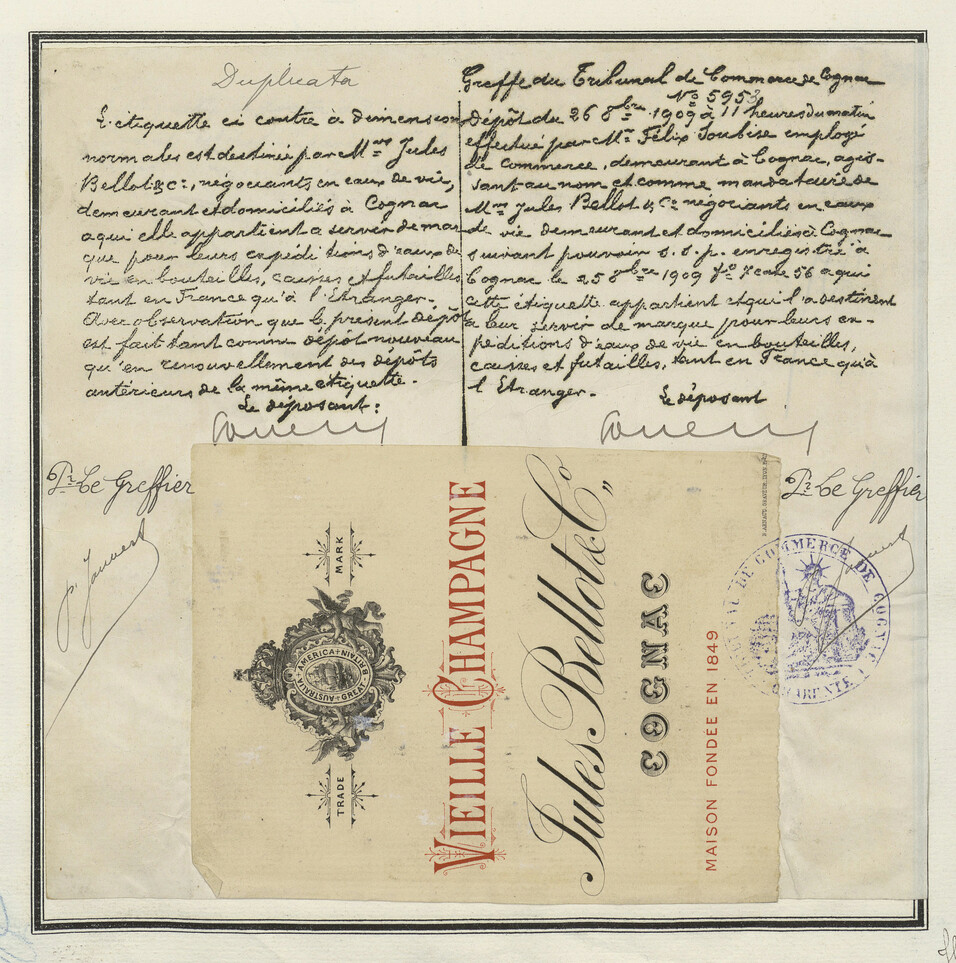 Duplicata
L'étiquette ci contre à dimension
normales est destinée par Mrs Jules
Bellot & Cie, négociants en eaux de vie,
demeurant et domiciliés à Cognac
a qui elle appartient a servir de mar
que pour leurs expéditions d'eaux de
vie en bouteilles, caisses et futailles
tant en France qu'à l'Etranger.
Avec observation que le présent dépôt
est fait tant comme dépôt nouveau
qu'en renouvellement des dépôts
antérieurs de la même étiquette.
Le déposant:
Pr Le Greffier
p. Jauvert
Greffe du Tribunal de Commerce de Cognac
No 5953
Dépôt du 26 8bre 1909 à 11 heures du matin
effectué par Mr Félix Soubise employé
de commerce, demeurant à Cognac, agis-
sant au nom et comme mandataire de
Mrs Jules Bellot & Cie négociants en eaux
de vie demeurant et domiciliés à Cognac
suivant pouvoir s.s.p. enregistré à
Cognac le 25 8bre 1909 fo 7 case 56 a qui
cette étiquette appartient et qui l'a destinent
a leur servir de marque pour leurs ex-
péditions d'eaux de vie en bouteilles,
caisses et futailles, tant en France qu'à
l'Etranger.
Le déposant
Pr Le Greffier
TRADE MARK
AUSTRALIA + AMERICA + GREAT BRITAIN
VIEILLE CHAMPAGNE
Jules Bellot & Co,,
COGNAC
MAISON FONDÉE EN 1849
TRIBUNAL DE COMMERCE DE COGNAC
CHARENTE